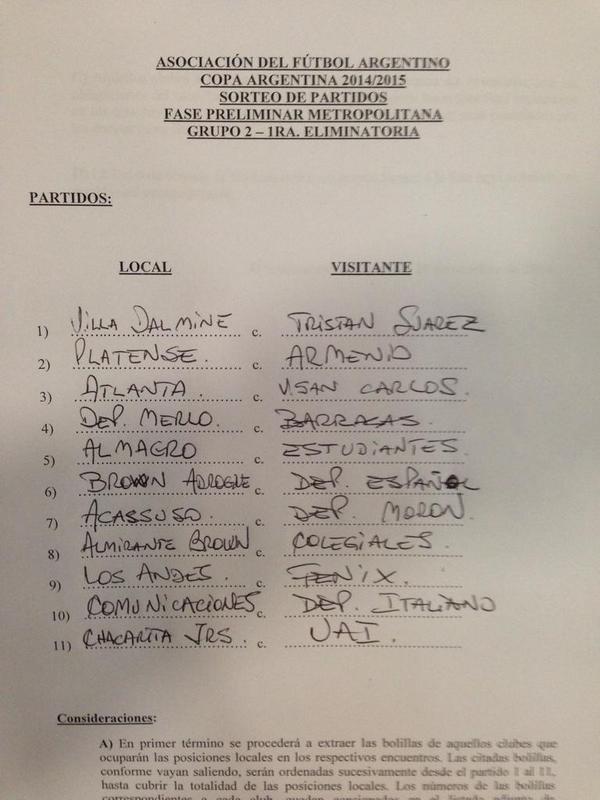 ASOCIACIÓN DEL FÚTBOL ARGENTINO
COPA ARGENTINA 2014/2015
SORTEO DE PARTIDOS
FASE PRELIMINAR METROPOLITANA
GRUPO 2 – 1RA. ELIMINATORIA
PARTIDOS:
LOCAL VISITANTE
1) VILLA DALMINE c. TRISTAN SUAREZ
2) PLATENSE. c. ARMENIO
3) ATLANTA. c. V. SAN CARLOS.
4) DEP. MERLO. c. BARRACAS.
5) ALMAGRO c. ESTUDIANTES.
6) BROWN ADROGUE c. DEP. ESPAÑOL
7) ACASSUSO. c. DEP. MORON.
8) ALMIRANTE BROWN c. COLEGIALES.
9) LOS ANDES. c. FENIX.
10) COMUNICACIONES c. DEP. ITALIANO
11) CHACARITA JRS. c. UAI.
Consideraciones:
A) En primer término se procederá a extraer las bolillas de aquellos clubes que
ocuparán las posiciones locales en los respectivos encuentros. Las citadas bolillas,
conforme vayan saliendo, serán ordenadas sucesivamente desde el partido 1 al 11,
hasta cubrir la totalidad de las posiciones locales. Los números de las bolillas